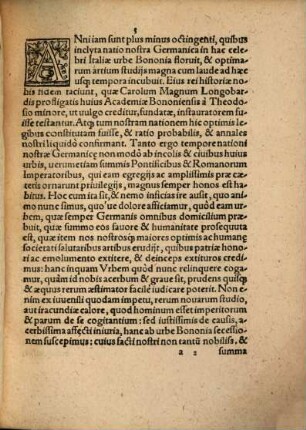 ANni iam sunt plus minus octingenti, quibus
inclyta natio nostra Germanica in hac cele
bri Italiæ urbe Bononia floruit, & optima
rum artium studijs magna cum laude ad hæc
usq; tempora incubuit. Eius rei historiæ no
bis fidem faciunt, quæ Carolum Magnum Longobar
dis profligatis huius Academiæ Bononiensis à Theodo
sio minore, ut uulgo creditur, fundatæ, instauratorem fu
isse testantur. Atq; tum nostram nationem hic optimis le
gibus constitutam fuisse, & ratio probabilis, & annales
nostri liquidò confirmant. Tanto ergo tempore nationi
nostræ Germanicę non modò ab incolis & ciuibus huius
urbis, uerumetiam summis Pontificibus & Romanorum
Imperatoribus, qui eam egregijs ac amplissimis præ cæ
teris ornarunt priuilegijs, magnus semper honos est ha
bitus. Hoc cum ita sit, & nemo inficias ire ausit, quo ani
mo nunc simus, quo'ue dolore afficiamur, quòd eam ur
bem, quæ semper Germanis omnibus domicilium præbu
it, quæ summo eos fauore & humanitate prosequuta
est, quæ item nos nostrosq; maiores optimis ac humanę
societati salutaribus artibus erudijt, quibus patriæ hono
ri ac emolumento extitere, & deinceps extituros credi
mus: hanc inquam Vrbem quòd nunc relinquere cogã
mur, quàm id nobis acerbum & graue sit, prudens quisq;
& æquus rerum æstimator facile iudicare poterit. Non e
nim ex iuuenili quodam impetu, rerum nouarum studio,
aut iracundiæ calore, quod hominum esset imperitorum
& parum de se cogitantium: sed iustissimis de causis, a-
cerbissima affecti iniuria, hanc ab urbe Bononia secessio
nem suscepimus: cuius facti nostri non tantũ nobilis, &
a 2 summa